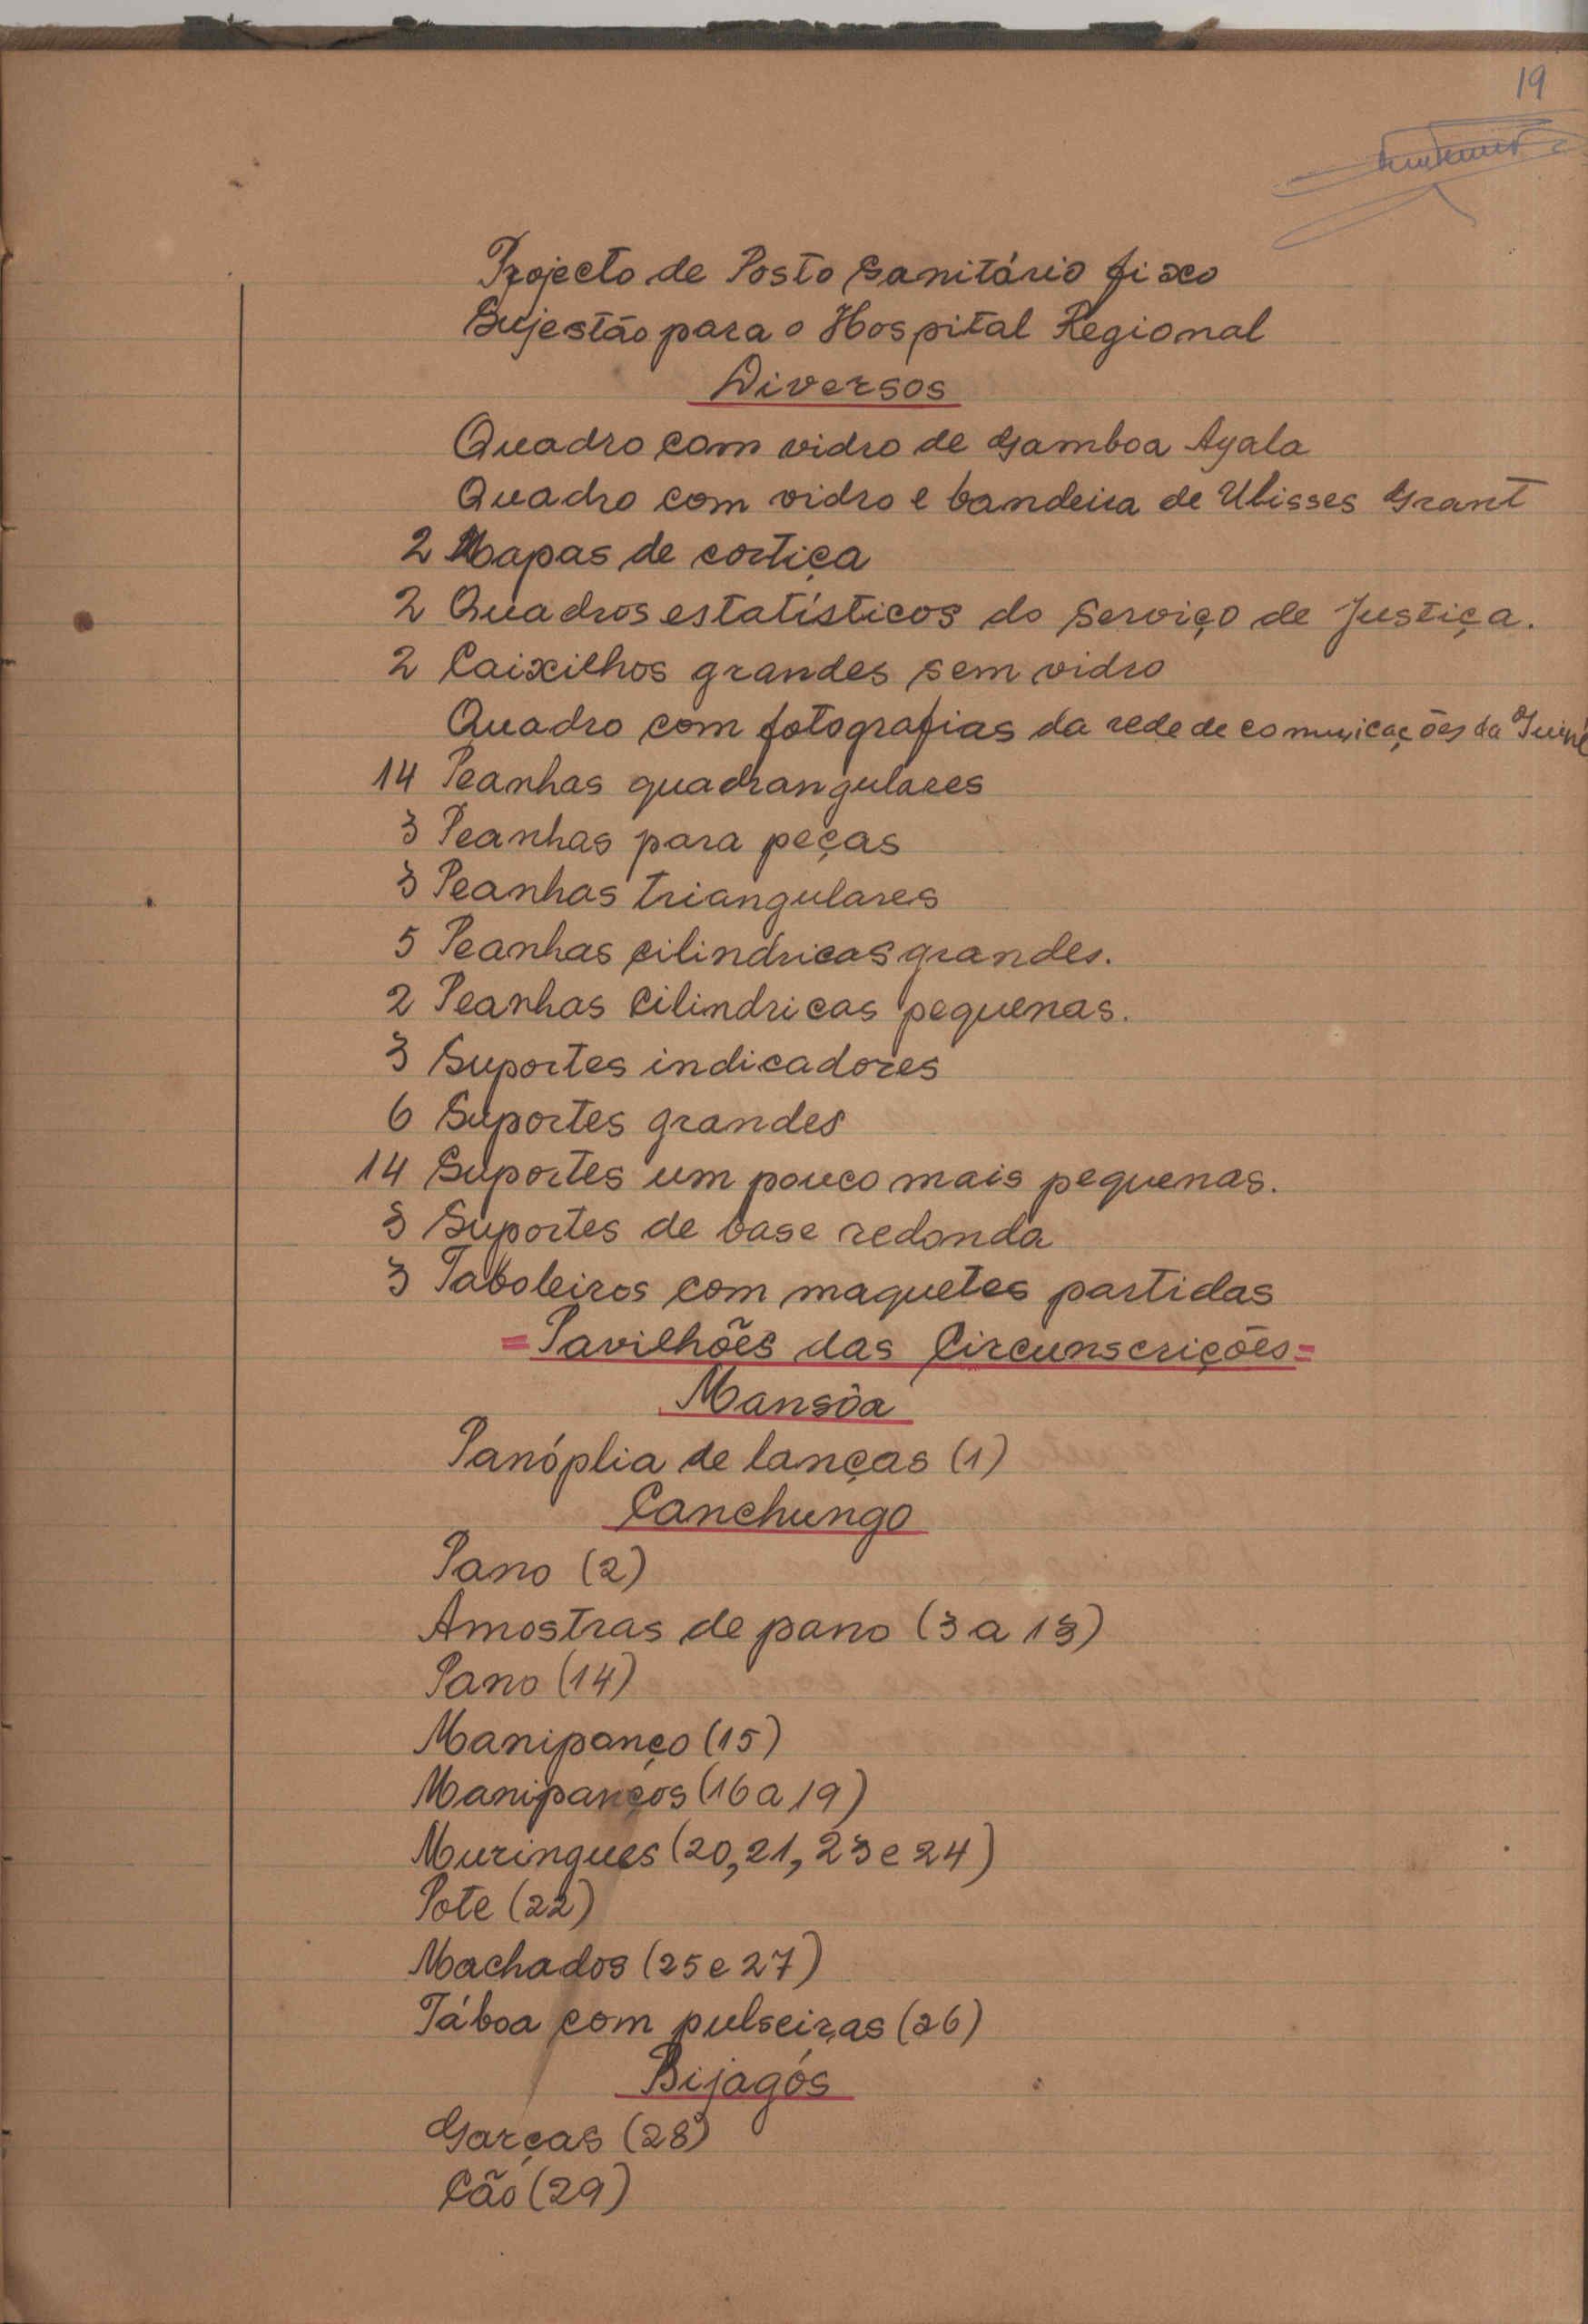 19
Projecto de Posto Sanitário fixo
Sujestão para o Hospital Regional
Diversos
Quadro com vidro de Gamboa Ayala
Quadro com vidro e bandeira de Ulisses Grant
2 Mapas de cortiça
2 Quadros estatísticos do Serviço de Justiça.
2 Caixilhos grandes sem vidro
Quadro com fotografias da rede de comunicações da Guiné
14 Peanhas quadrangulares
3 Peanhas para peças
3 Peanhas triangulares
5 Peanhas cilindricas grandes.
2 Peanhas cilindricas pequenas.
3 Suportes indicadores
6 Suportes grandes
14 Suportes um pouco mais pequenas.
3 Suportes de base redonda
3 Taboleiros com maquetes partidas
=Pavilhões das Circunscrições=
Mansôa
Panóplia de lanças (1)
Canchungo
Pano (2)
Amostras de pano (3 a 13)
Pano (14)
Manipanço (15)
Manipanços (16 a 19)
Muringues (20, 21, 23 e 24)
Pote (22)
Machados (25 e 27)
Táboa com pulseiras (26)
Bijagós
Garças (28)
Cão (29)